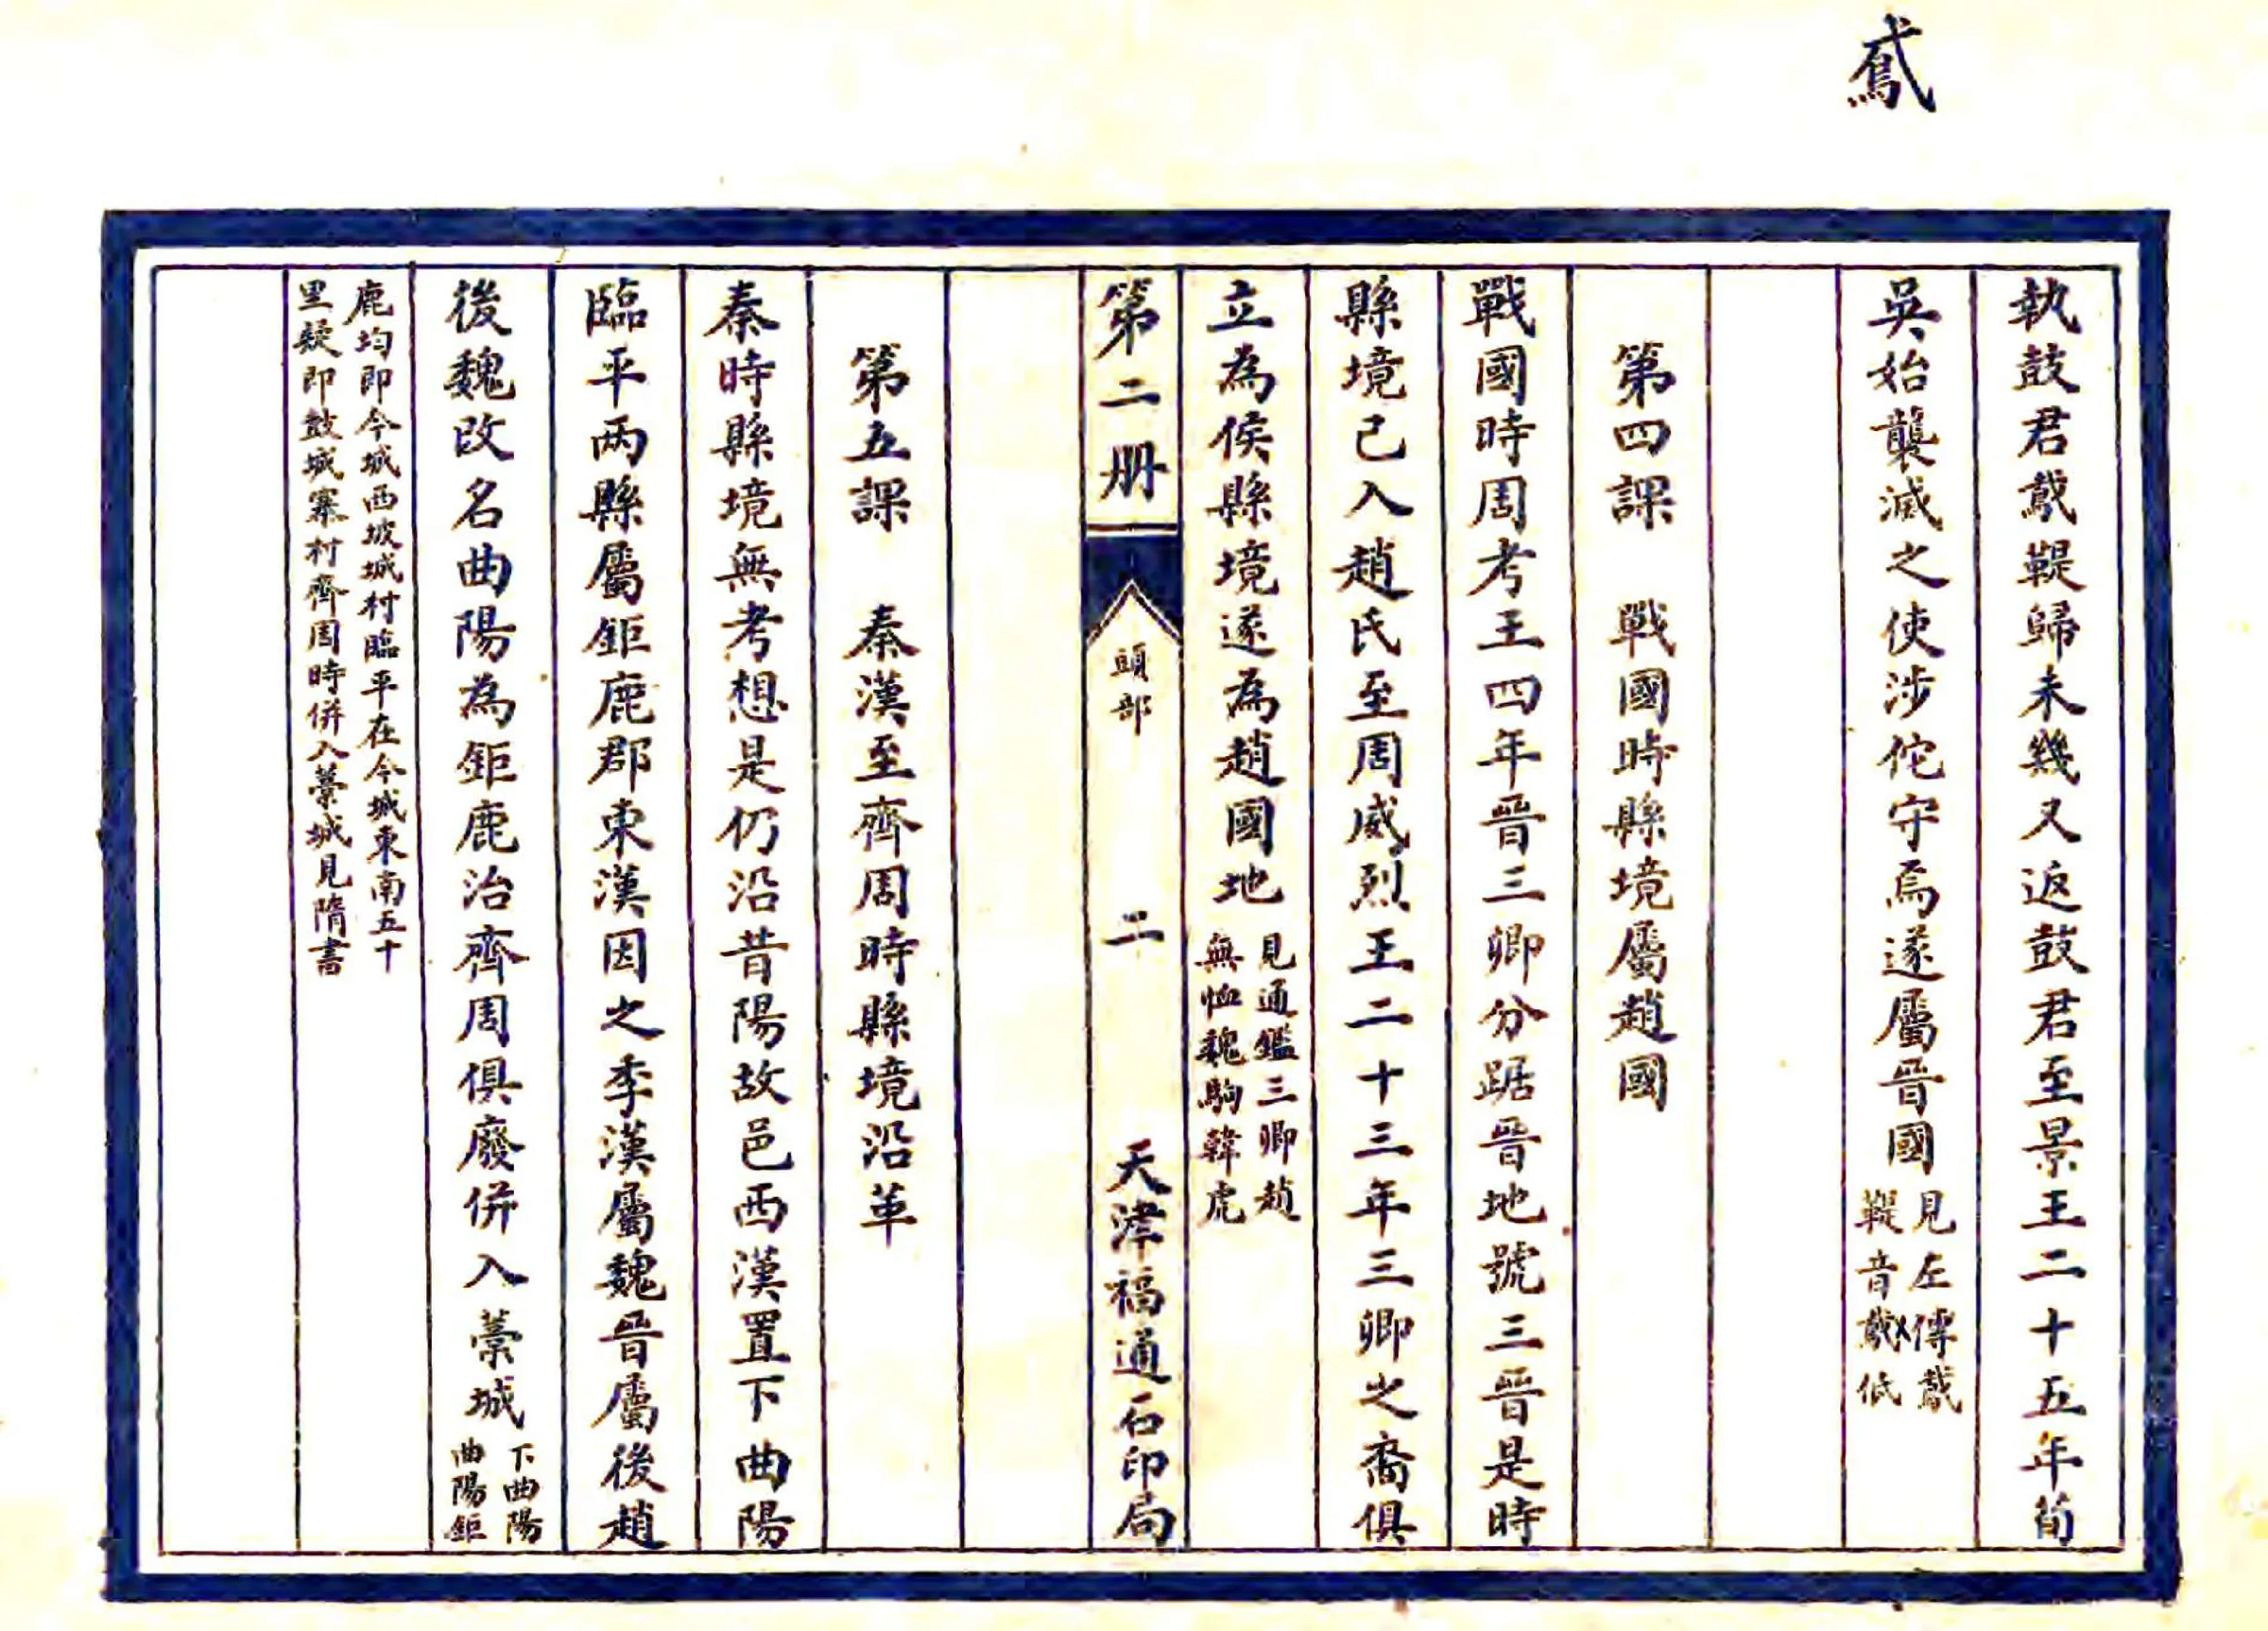 鳶
執鼓君鳶鞮歸未幾又返鼓君至景王二十五年荀
吳始襲滅之使涉佗守焉遂屬晉國
見左傳鳶
鞮音鳶低
第四課 戰國時縣境屬趙國
戰國時周考王四年晉三卿分踞晉地號三晉是時
縣境已入趙氏至周威烈王二十三年三卿之裔俱
立為侯縣境遂為趙國地
見通鑑三卿趙
無恤魏駒韓虎
第二册 頭部 二 天津福通石印局
第五課 秦漢至齊周時縣境沿革
秦時縣境無考想是仍沿昔陽故邑西漢置下曲陽
臨平两縣屬鉅鹿郡東漢因之季漢屬魏晉屬後趙
後魏改名曲陽為鉅鹿治齊周俱廢併入藁城
下曲陽
曲陽鉅
鹿均即今城西坡城村臨平在今城東南五十
里疑即鼓城寨村齊周時併入藁城見隋書